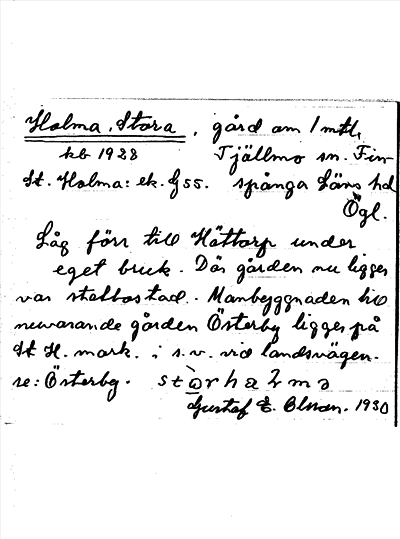 Holma, Stora, gård om 1 mtl,
kb 1928 Tjällmo sn. Fin
St. Holma: ek. G55. spånga Läns hd
Ögl.
Låg förr till Hättorp under
eget bruk. Där gården nu ligger
var statbostad. Manbyggnaden til
nuvarande gården Österby ligger på
St H. mark. i s.v. vid landsvägen.
se: Österby.
Gustaf E. Olsson. 1930